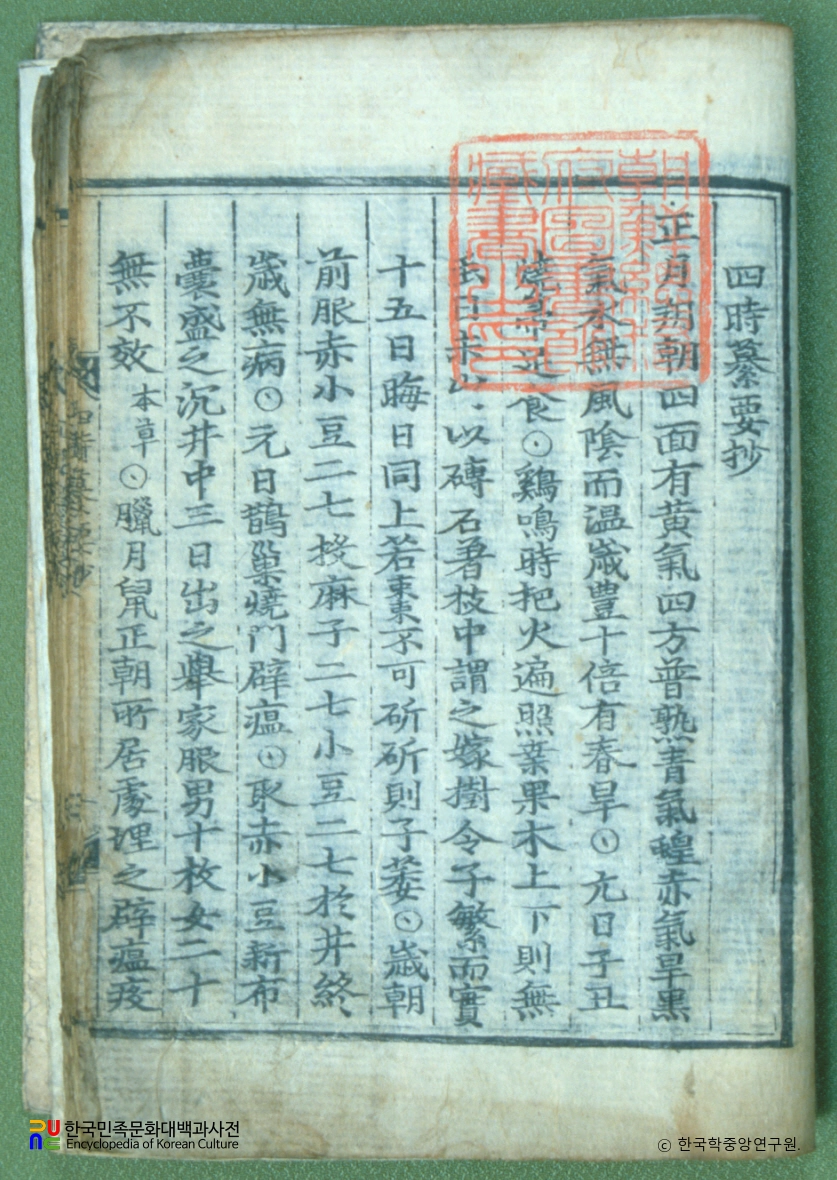 四時纂要抄
正月朔朝四面有黄氣四方普熟青氣蝗赤氣旱黒
氣水無風陰而温歲豊十倍有春旱○元日子丑
食○鷄鳴時把火遍照葉果木上下則無
以磚石着枝中謂之嫁樹令子繁而實
十五日晦日同上若棗不可斫斫則子萎○歲朝
前服赤小豆二七枚麻子二七小豆二七於井終
歲無病○元日鵲巢燒門辟瘟○取赤小豆新布
囊盛之沉井中三日出之擧家服男十枚女二十
無不效 本草○臘月鼠正朝所居處埋之辟瘟疫
朝鮮總督府圖書館藏書之印
한국민족문화대백과사전
Encyclopedia of Korean Culture
ⓒ 한국학중앙연구원.